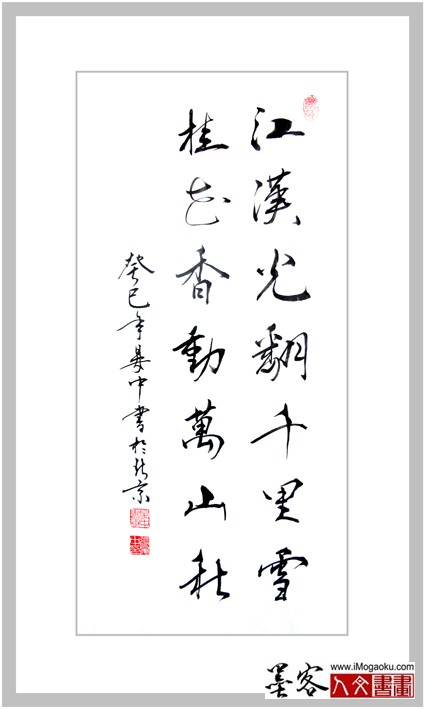 江漢光翻千里雪
桂花香動萬山秋
癸巳年晏中書於北京
墨客
www.iMogaoku.com
人文書畫